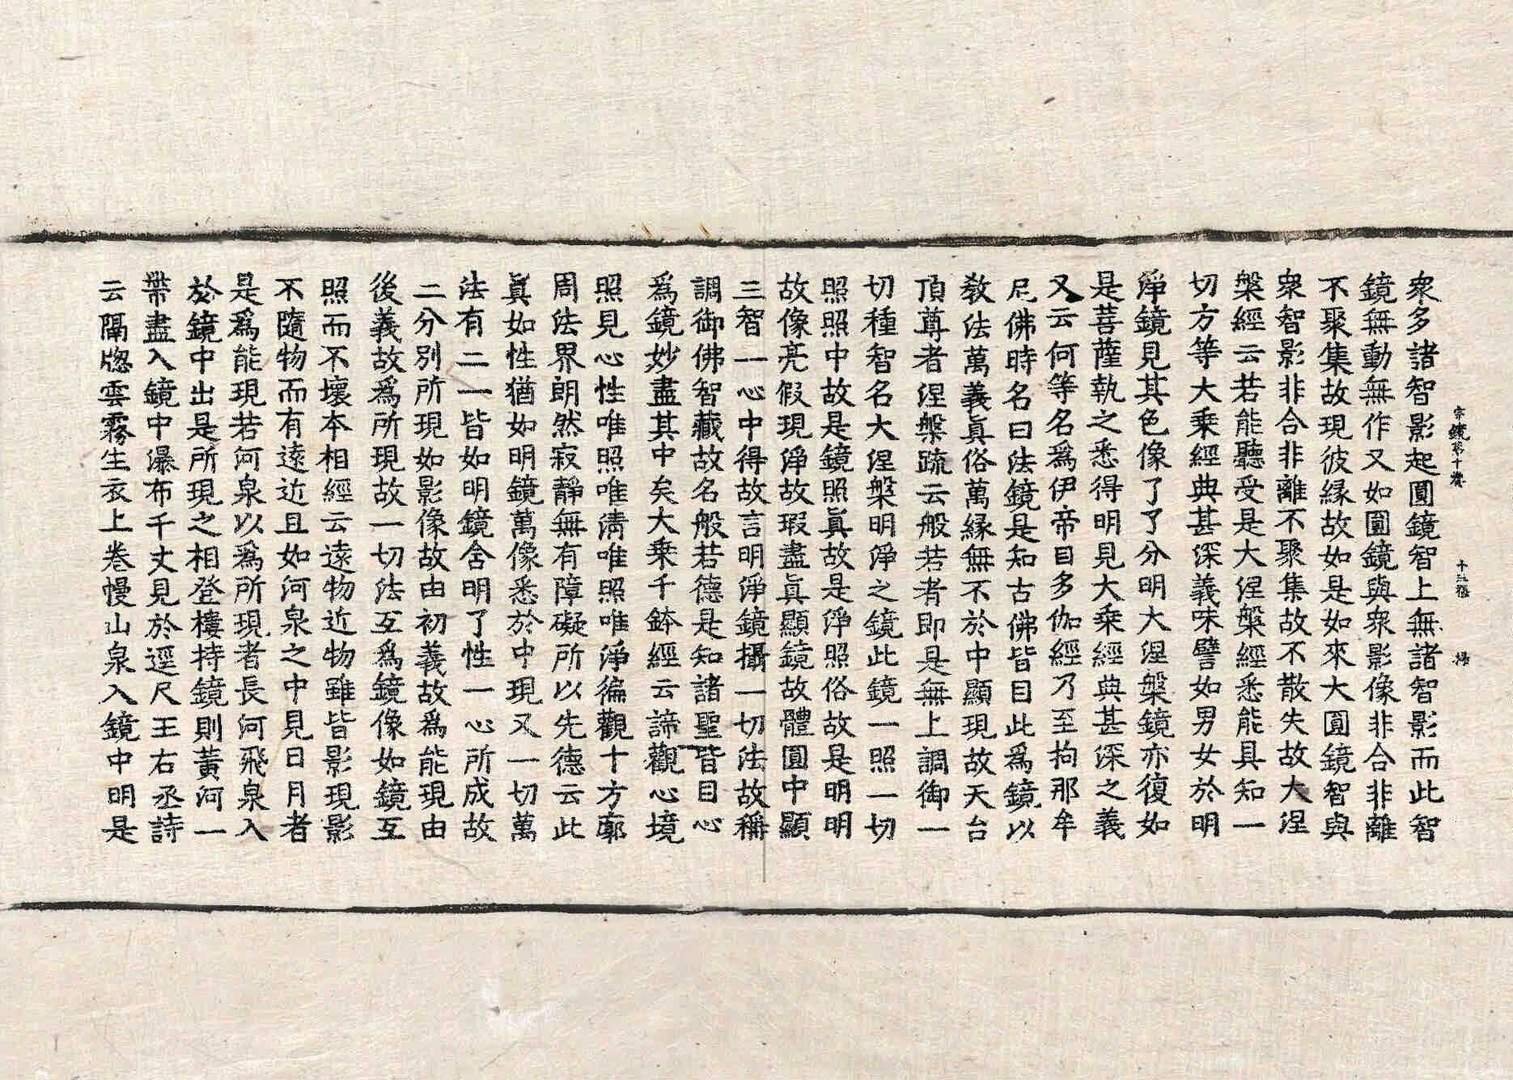 宗鏡第十卷　十三張　揚
衆多諸智影起圓鏡智上無諸智影而此智
鏡無動無作又如圓鏡與衆影像非合非離
不聚集故現彼緣故如是如來大圓鏡智與
衆智影非合非離不聚集故不散失故大涅
槃經云若能聽受是大涅槃經悉能具知一
切方等大乘經典甚深義味譬如男女於明
淨鏡見其色像了了分明大涅槃鏡亦復如
是菩薩執之悉得明見大乘經典甚深之義
又云何等名爲伊帝目多伽經乃至拘那牟
尼佛時名曰法鏡是知古佛皆目此爲鏡以
敎法萬義眞俗萬緣無不於中顯現故天台
頂尊者涅槃疏云般若者即是無上調御一
切種智名大涅槃明淨之鏡此鏡一照一切
照照中故是鏡照眞故是淨照俗故是明明
故像亮假現淨故瑕盡眞顯鏡故體圓中顯
三智一心中得故言明淨鏡攝一切法故稱
調御佛智藏故名般若德是知諸聖皆目心
爲鏡妙盡其中矣大乘千鉢經云諦觀心境
照見心性唯照唯淸唯照唯淨徧觀十方廓
周法界朗然寂靜無有障礙所以先德云此
眞如性猶如明鏡萬像悉於中現又一切萬
法有二一皆如明鏡含明了性一心所成故
二分別所現如影像故由初義故爲能現由
後義故爲所現故一切法互爲鏡像如鏡互
照而不壞本相經云遠物近物雖皆影現影
不隨物而有遠近且如河泉之中見日月者
是爲能現若河泉以爲所現者長河飛泉入
於鏡中出是所現之相登樓持鏡則黃河一
帶盡入鏡中瀑布千丈見於逕尺王右丞詩
云隔牕雲霧生衣上卷慢山泉入鏡中明是